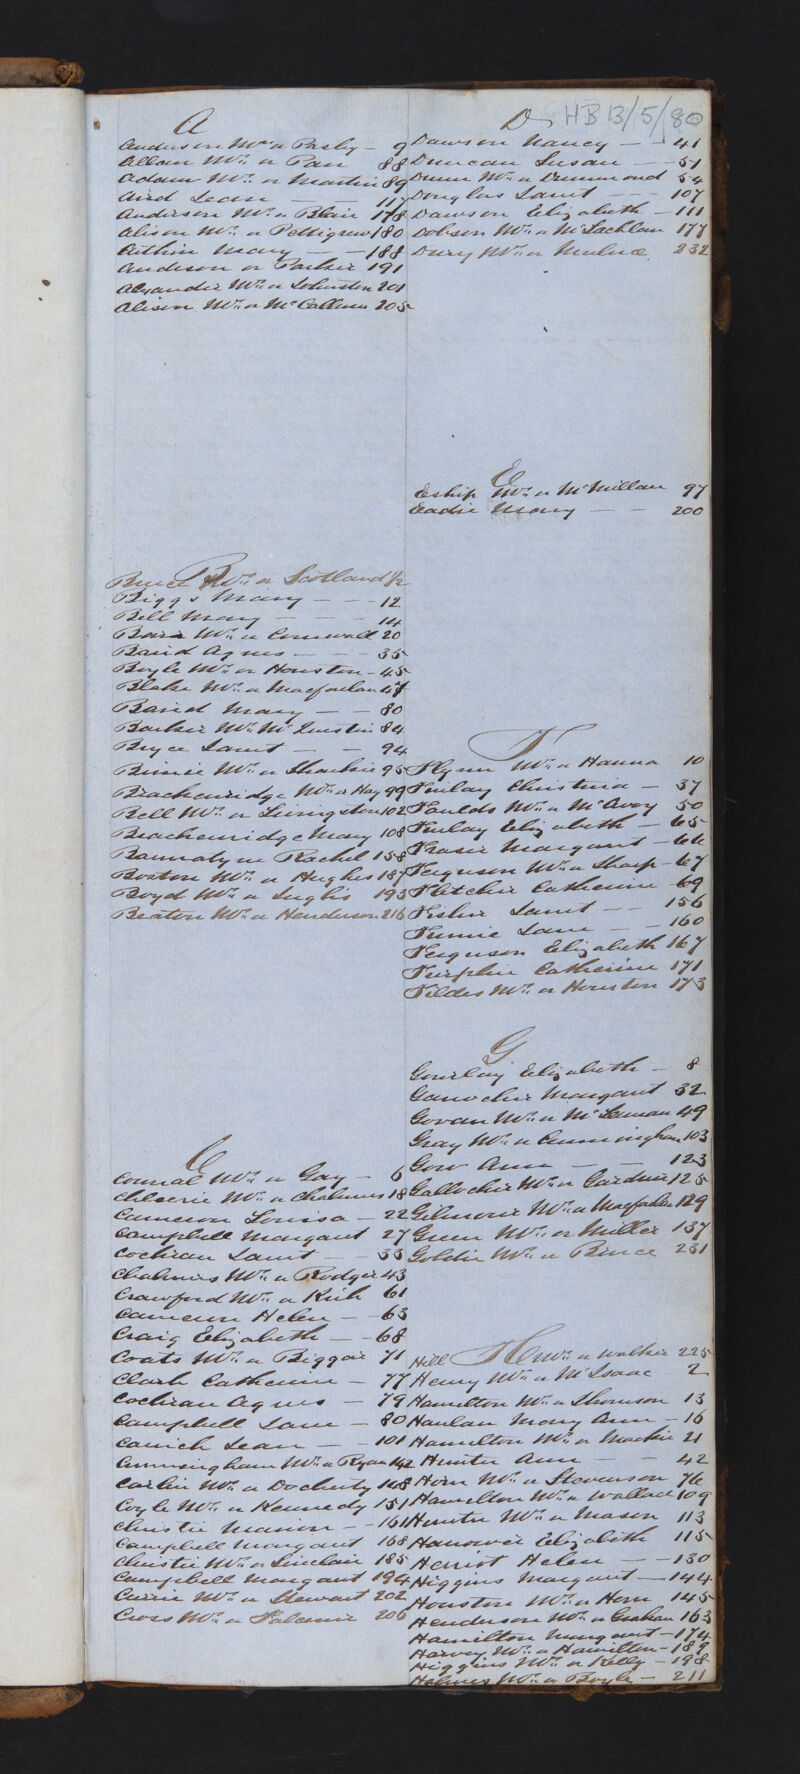 A
Anderson Mrs or Pasley - 9
Allan Mrs or Parr 88
Adam Mrs or Martin 89
Aird Jean - - 117
Anderson Mrs or Blair 178
Alison Mrs or Pettigrew 180
Aithin Mary - - 188
Anderson or Parker 191
Alexander Mrs or Johnston 201
Alison Mrs or McCallum 205
B
Bruce Mrs or Scotland 1/2
Biggs Mary - - 12
Bell Mary - - 14
Barr Mrs or Cornwall 20
Baird Agnes - - 35
Boyle Mrs or Houston - 45
Blake Mrs or Macfarlan 47
Baird Mary - - 80
Barker Mrs 84
Bryce Janet - - 94
Binnie Mrs or Sharkie 95
Brackenridge Mrs or Hay 99
Bell Mrs or Livingston 102
Brackenridge Mary 108
Bannatyne Rachel 158
Boston Mrs or Hughes 187
Boyd Mrs or Inglis 193
Beaton Mrs or Henderson 216
C
Connal Mrs or Gay - 6
Mrs or Chalmers 18
Cameron Louisa - 22
Campbell Margaret 27
Cochran Janet - 33
Chalmers Mrs or Rodger 43
Crawford Mrs or Kirk 61
Cameron Helen - 63
Craig Elizabeth - 68
Coats Mrs or Biggar 71
Clark Catherine - 77
Cochran Agnes - 79
Campbell Jane - 80
Carrick Jean - 101
Cunningham Mrs or Ryan 142
Carlin Mrs or Docherty 148
Coyle Mrs or Kennedy 151
Christie Marion - 161
Campbell Margaret 168
Christie Mrs or Sinclair 185
Campbell Margaret 194
Currie Mrs or Stewart 202
Cross Mrs or Falconer 206
HB13/5/80
D
Dawson Nancy - - 41
Duncan Susan - - 51
Dunn Mrs or Drummond 54
Douglas Janet - - 107
Dawson Elizabeth - 111
Dobson Mrs or McLachlan 177
Drury Mrs or 232
E
Eship Mrs or McMillan 97
Eadie Mary - - 200
F
Flynn Mrs or Hanna 10
Finlay Christina - 37
Faulds Mrs or McAvoy 50
Finlay Elizabeth - 65
Fraser Margaret - 66
Ferguson Mrs or Sharp - 67
Fletcher Catherine - 69
Fisher Janet - - 156
Finnie Jane - - 160
Ferguson Elizabeth 167
Catherine 171
Fildes Mrs or Houston 173
G
Gourlay Elizabeth - 8
Garrochie Margaret 32
Govan Mrs or McLennan 49
Gray Mrs or Cunningham 103
Gow Ann - - 123
Gallochie Mrs or Gardner 125
Gilmour Mrs or Macfarlan 129
Green Mrs or Miller 137
Goldie Mrs or Bruce 231
H
Hill Mrs or Walker 225
Henry Mrs or McIsaac 2
Hamilton Mrs or Thomson 13
Hanlan Mary Ann - 16
Hamilton Mrs or Mackie 21
Hunter Ann - - 42
Horn Mrs or Stevenson 76
Hamilton Mrs or Wallace 109
Hunter Mrs or Mason 113
Hanower Elizabeth 115
Herriot Helen - - 130
Higgins Margaret - 144
Houston Mrs or Horn 145
Henderson Mrs or Graham 163
Hamilton Margaret - 174
Harvey Mrs or Hamilton - 189
Higgins Mrs or Kelly - 198
Holmes Mrs or Boyle - 211